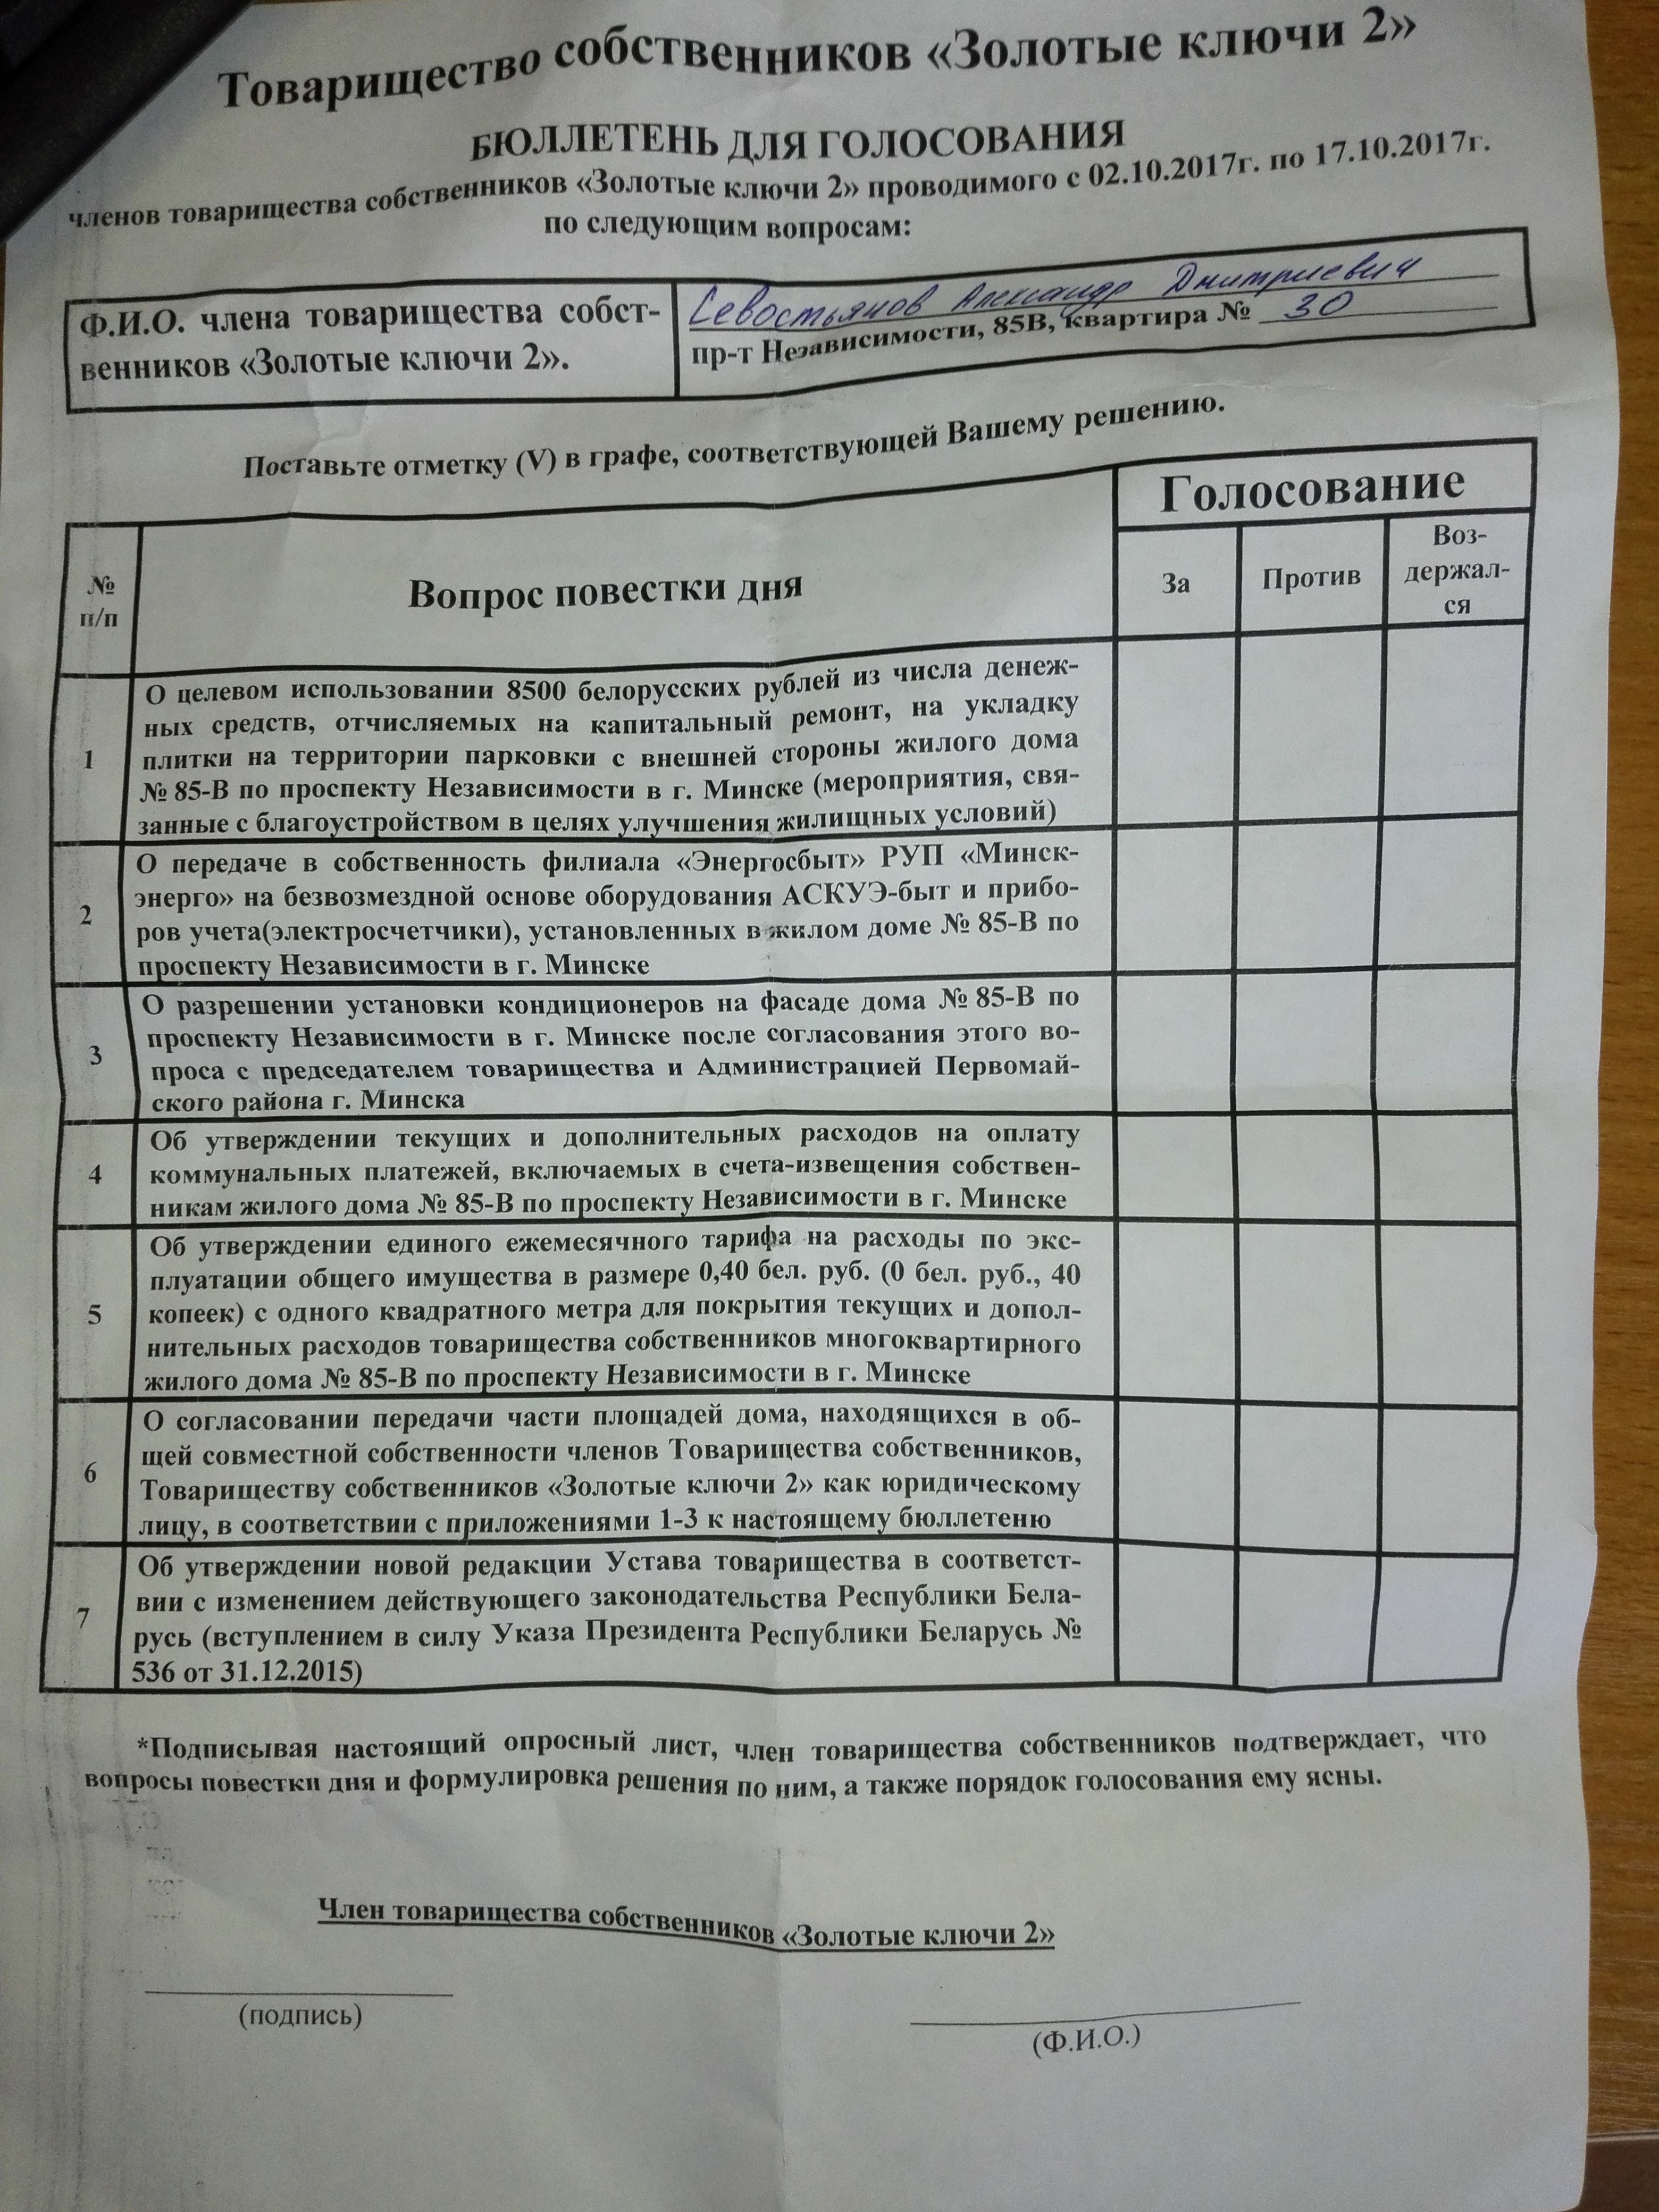 Товарищество собственников «Золотые ключи 2»
БЮЛЛЕТЕНЬ ДЛЯ ГОЛОСОВАНИЯ
членов товарищества собственников «Золотые ключи 2» проводимого с 02.10.2017г. по 17.10.2017г.
по следующим вопросам:
Ф.И.О. члена товарищества собст-
венников «Золотые ключи 2».
Севостьянов Александр Дмитриевич
пр-т Независимости, 85В, квартира № 30
Поставьте отметку (V) в графе, соответствующей Вашему решению.
№
п/п
Вопрос повестки дня
Голосование
За
Против
Воз-
держал-
ся
1
О целевом использовании 8500 белорусских рублей из числа денеж-
ных средств, отчисляемых на капитальный ремонт, на укладку
плитки на территории парковки с внешней стороны жилого дома
№ 85-В по проспекту Независимости в г. Минске (мероприятия, свя-
занные с благоустройством в целях улучшения жилищных условий)
2
О передаче в собственность филиала «Энергосбыт» РУП «Минск-
энерго» на безвозмездной основе оборудования АСКУЭ-быт и прибо-
ров учета(электросчетчики), установленных в жилом доме № 85-В по
проспекту Независимости в г. Минске
3
О разрешении установки кондиционеров на фасаде дома № 85-В по
проспекту Независимости в г. Минске после согласования этого во-
проса с председателем товарищества и Администрацией Первомай-
ского района г. Минска
4
Об утверждении текущих и дополнительных расходов на оплату
коммунальных платежей, включаемых в счета-извещения собствен-
никам жилого дома № 85-В по проспекту Независимости в г. Минске
5
Об утверждении единого ежемесячного тарифа на расходы по экс-
плуатации общего имущества в размере 0,40 бел. руб. (0 бел. руб., 40
копеек) с одного квадратного метра для покрытия текущих и допол-
нительных расходов товарищества собственников многоквартирного
жилого дома № 85-В по проспекту Независимости в г. Минске
6
О согласовании передачи части площадей дома, находящихся в об-
щей совместной собственности членов Товарищества собственников,
Товариществу собственников «Золотые ключи 2» как юридическому
лицу, в соответствии с приложениями 1-3 к настоящему бюллетеню
7
Об утверждении новой редакции Устава товарищества в соответст-
вии с изменением действующего законодательства Республики Бела-
русь (вступлением в силу Указа Президента Республики Беларусь №
536 от 31.12.2015)
*Подписывая настоящий опросный лист, член товарищества собственников подтверждает, что
вопросы повестки дня и формулировка решения по ним, а также порядок голосования ему ясны.
Член товарищества собственников «Золотые ключи 2»
(подпись)
(Ф.И.О.)